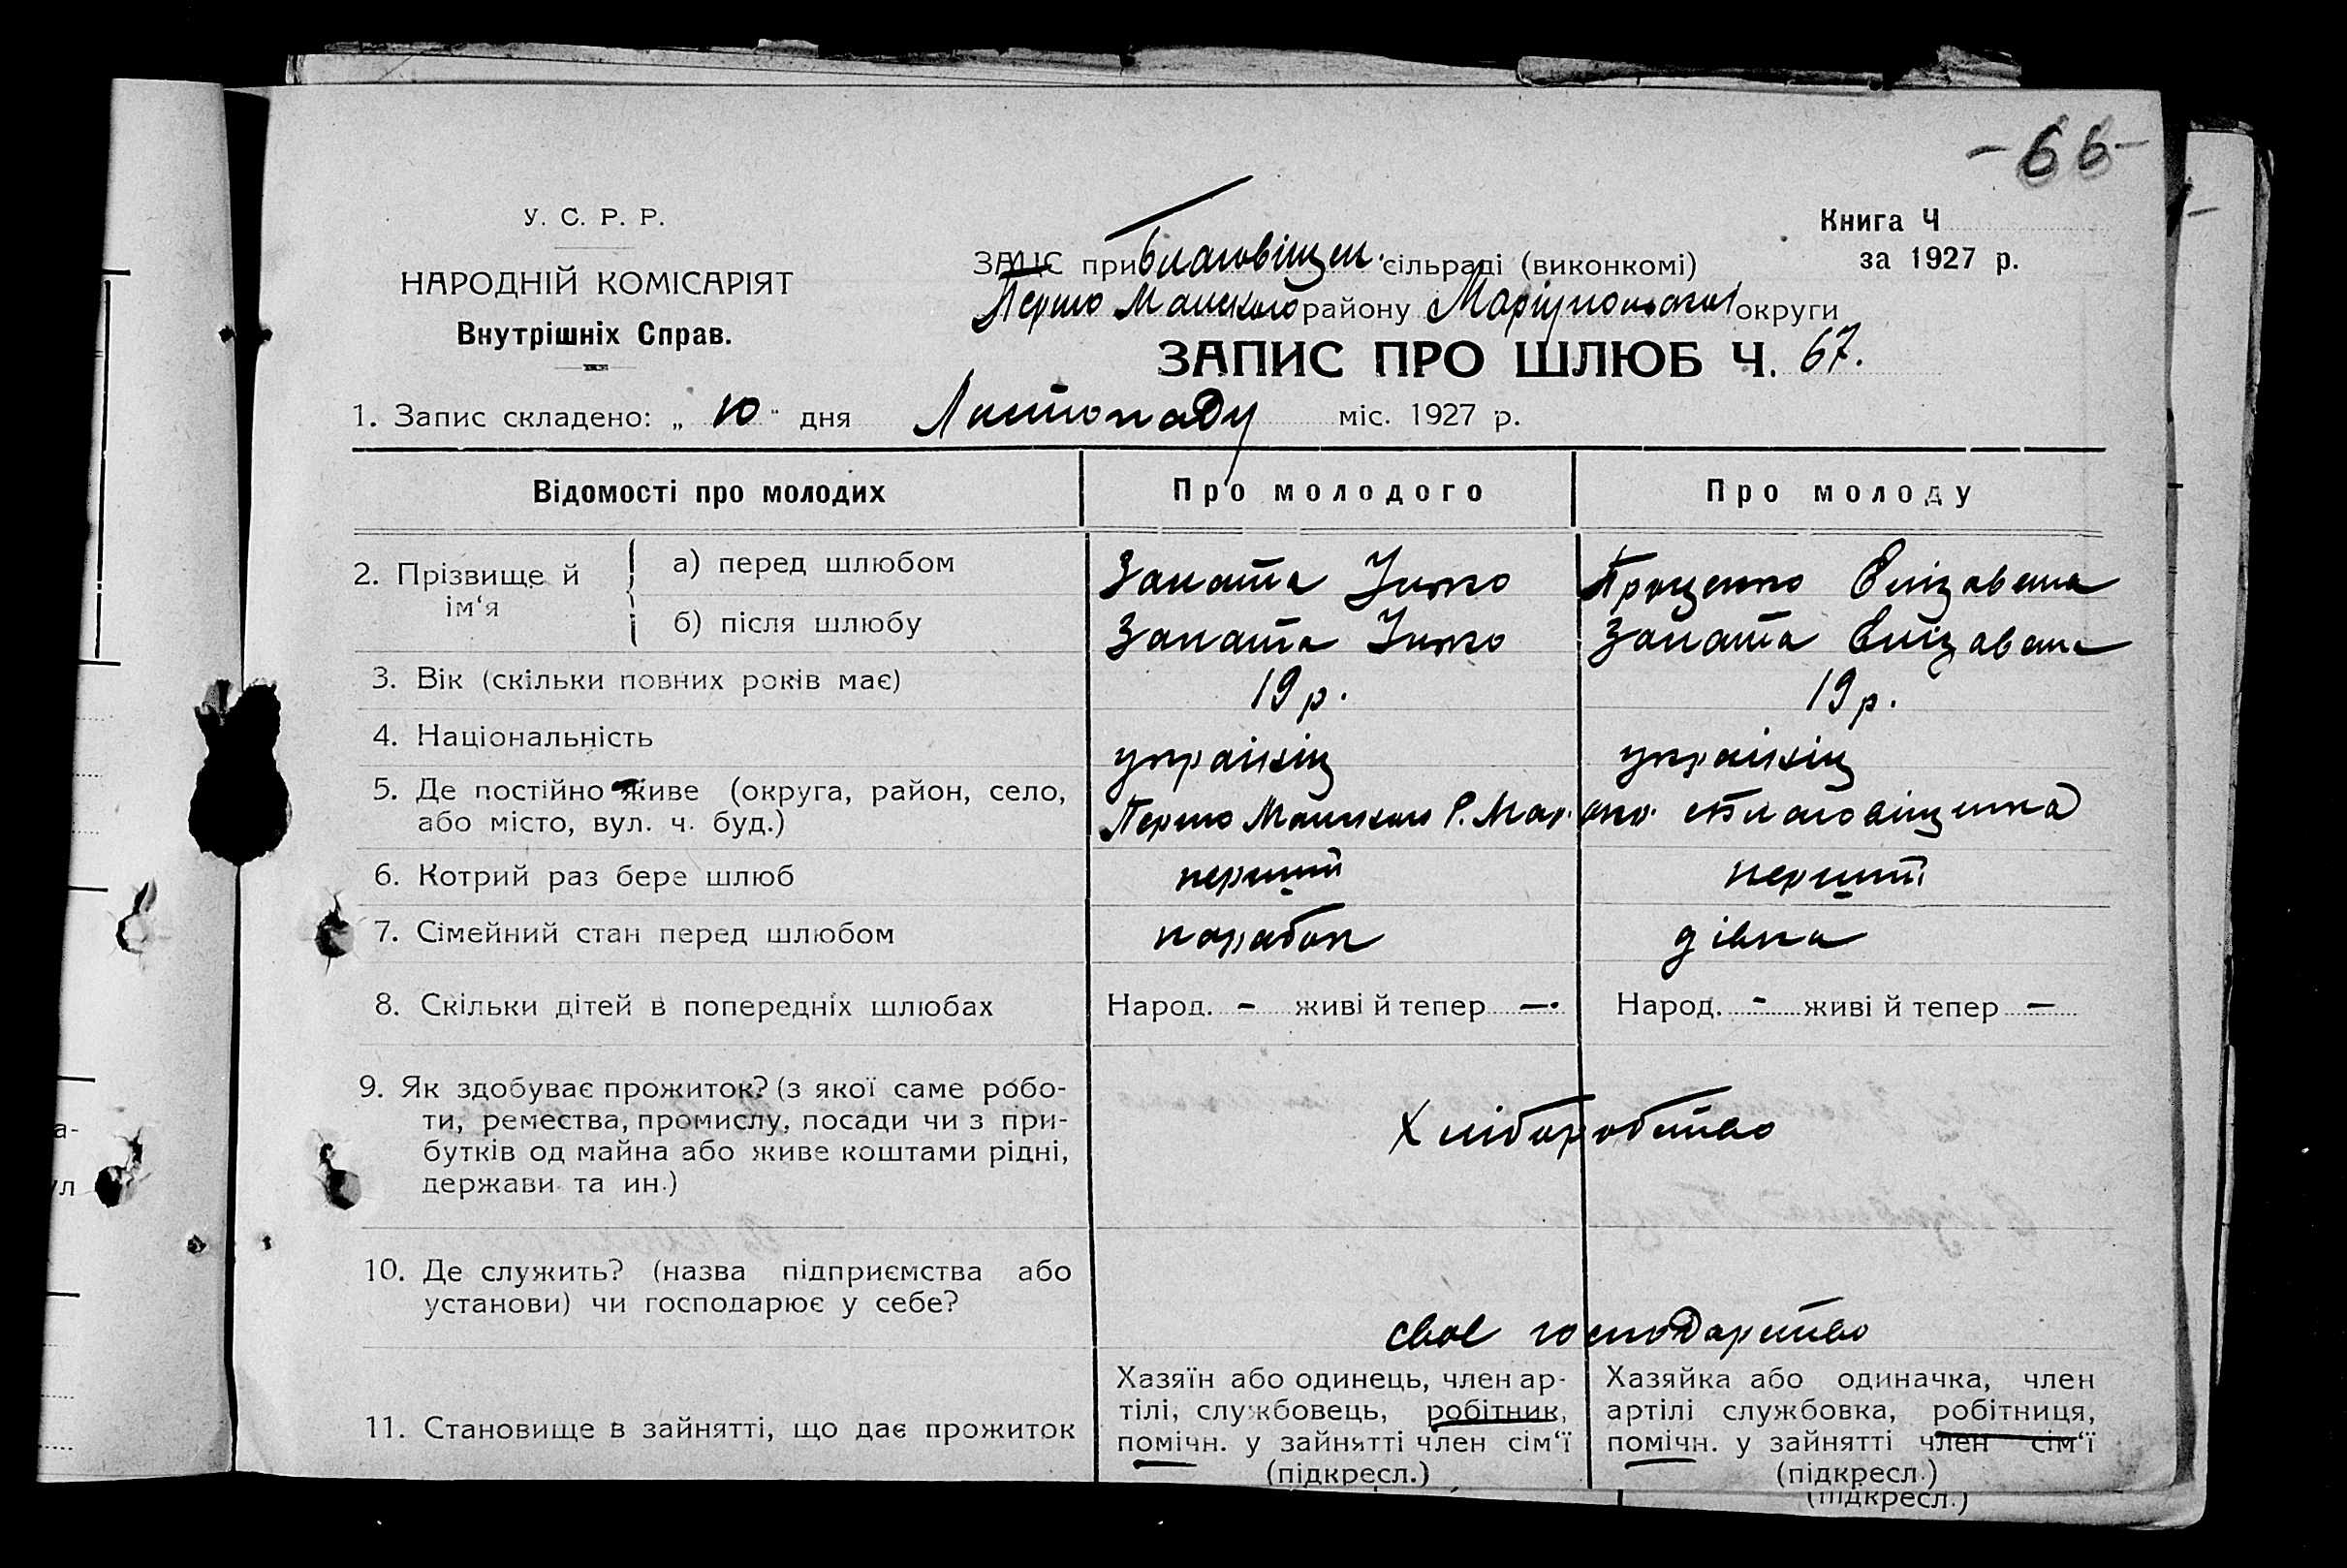 -66-
У. С. Р. Р.
НАРОДНІЙ КОМІСАРІЯТ
Внутрішніх Справ.
Книга Ч
за 1927 р.
ЗАПІС при Благовіщен. сільраді (виконкомі)
Першо Манского району Маріупольської округи
ЗАПИС ПРО ШЛЮБ Ч. 67.
1. Запис складено: „ 10 " дня Листопаду міс. 1927 р.
Відомості про молодих Про молодого Про молоду
2. Прізвище й ім'я
а) перед шлюбом Проценко Єлізавета
б) після шлюбу Єлізавета
3. Вік (скільки повних років має) 19 р. 19 р.
4. Національність українці українці
5. Де постійно живе (округа, район, село,
або місто, вул. ч. буд.) Першо Манського Р. Мар. окр. с Благовіщенка
6. Котрий раз бере шлюб перший перший
7. Сімейний стан перед шлюбом парабок дівка
8. Скільки дітей в попередніх шлюбах Народ. - живі й тепер -. Народ. - живі й тепер -
9. Як здобуває прожиток? (з якої саме робо-
ти, ремества, промислу, посади чи з при-
бутків од майна або живе коштами рідні,
держави та ин.)
Хліборобство
10. Де служить? (назва підприємства або
установи) чи господарює у себе?
своє господарство
11. Становище в зайнятті, що дає прожиток
Хазяїн або одинець, член ар-
тілі, службовець, робітник,
помічн. у зайнятті член сім'ї
(підкресл.)
Хазяйка або одиначка, член
артілі службовка, робітниця,
помічн. у зайнятті член сім'ї
(підкресл.)
(підкресл.)